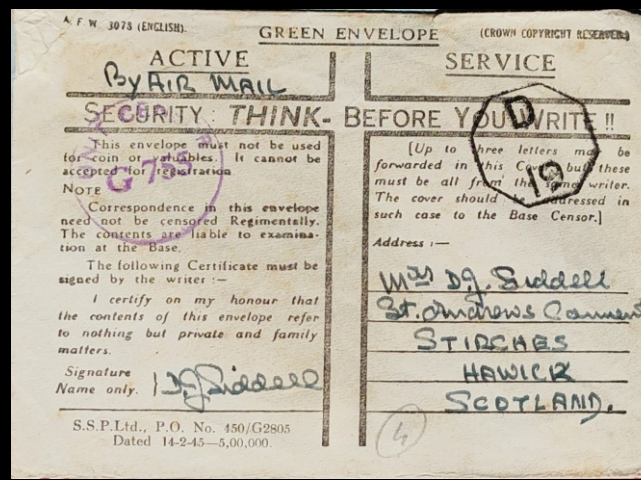 A. F. W. 3078 (ENGLISH).
GREEN ENVELOPE
(CROWN COPYRIGHT RESERVED)
ACTIVE SERVICE
By AIR MAIL
SECURITY: THINK- BEFORE YOU WRITE !!
This envelope must not be used
for coin or valuables. It cannot be
accepted for registration.
NOTE
Correspondence in this envelope
need not be censored Regimentally.
The contents are liable to examina-
tion at the Base.
The following Certificate must be
signed by the writer :—
I certify on my honour that
the contents of this envelope refer
to nothing but private and family
matters.
Signature
Name only. D.J. Siddell
S.S.P.Ltd., P.O. No. 450/G2805
Dated 14-2-45—5,00,000.
UNIT CENSOR
G 755
D
19
[Up to three letters may be
forwarded in this Cover but these
must be all from the same writer.
The cover should be addressed in
such case to the Base Censor.]
Address :—
Mrs D.J. Siddell
St. Andrews Convent
STIRCHES
HAWICK
SCOTLAND.
4